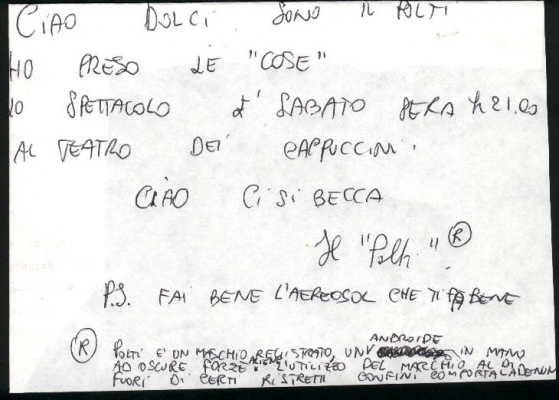 CIAO DOLCI SONO IL POLTI
HO PRESO LE "COSE"
LO SPETTACOLO E' SABATO SERA h 21.00
AL TEATRO DEI CAPPUCCINI.
CIAO CI SI BECCA
Il "Polti".®
P.S. FAI BENE L'AEREOSOL CHE TI FA BENE
® POLTI E' UN MASCHIO REGISTRATO, UN ANDROIDE IN MANO
AD OSCURE FORZE ALIENE. L'UTILIZZO DEL MARCHIO AL DI
FUORI DI CERTI RISTRETTI CONFINI COMPORTA LA DENUN